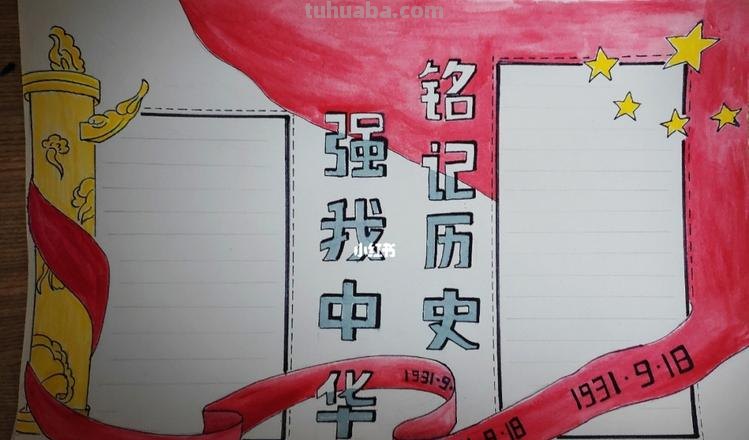 tuhuaba.com
铭记历史
强我中华
小红书
1931·9·18
1931·9.
9·18